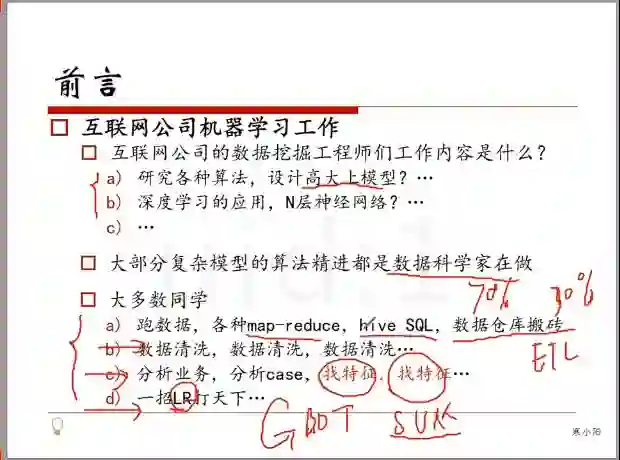 前言
互联网公司机器学习工作
互联网公司的数据挖掘工程师们工作内容是什么？
a) 研究各种算法，设计高大上模型？…
b) 深度学习的应用，N层神经网络？…
c) …
大部分复杂模型的算法精进都是数据科学家在做
70% 30%
大多数同学
a) 跑数据，各种map-reduce，hive SQL，数据仓库搬砖
ETL
b) 数据清洗，数据清洗，数据清洗…
c) 分析业务，分析case，找特征，找特征…
d) 一招LR打天下…
GBDT
寒小阳